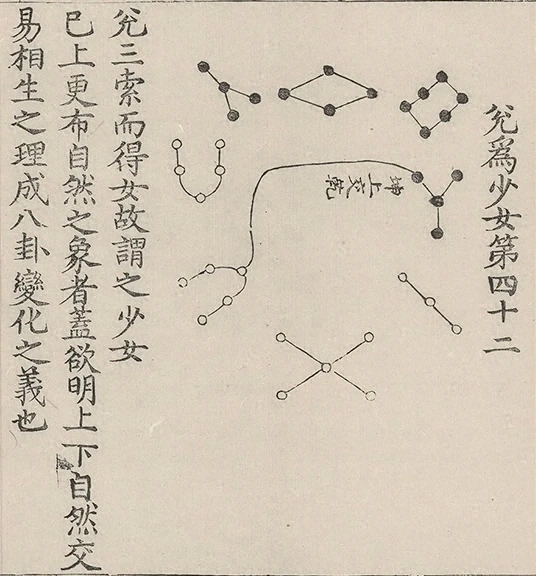 兊爲少女第四十二
坤上交乾
兊三索而得女故謂之少女
已上更布自然之象者蓋欲明上下自然交
易相生之理成八卦變化之義也